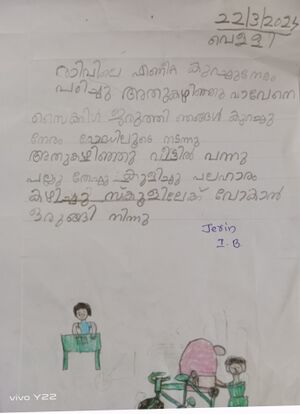 22/3/2024
വെള്ളി
രാവിലെ എണീറ്റ കുറച്ചുനേരം
പഠിച്ചു അതുകഴിഞ്ഞു വാവേനെ
സൈക്കിൾ ഇരുത്തി ഞങ്ങൾ കുറച്ചു
നേരം റോഡിലൂടെ നടന്നു
അതുകഴിഞ്ഞു വീട്ടിൽ വന്നു
പല്ലു തേച്ചു കുളിച്ചു പലഹാരം
കഴിച്ചു സ്കൂളിലേക് പോകാൻ
ഒരുങ്ങി നിന്നു
Jerin
I.B
vivo Y22